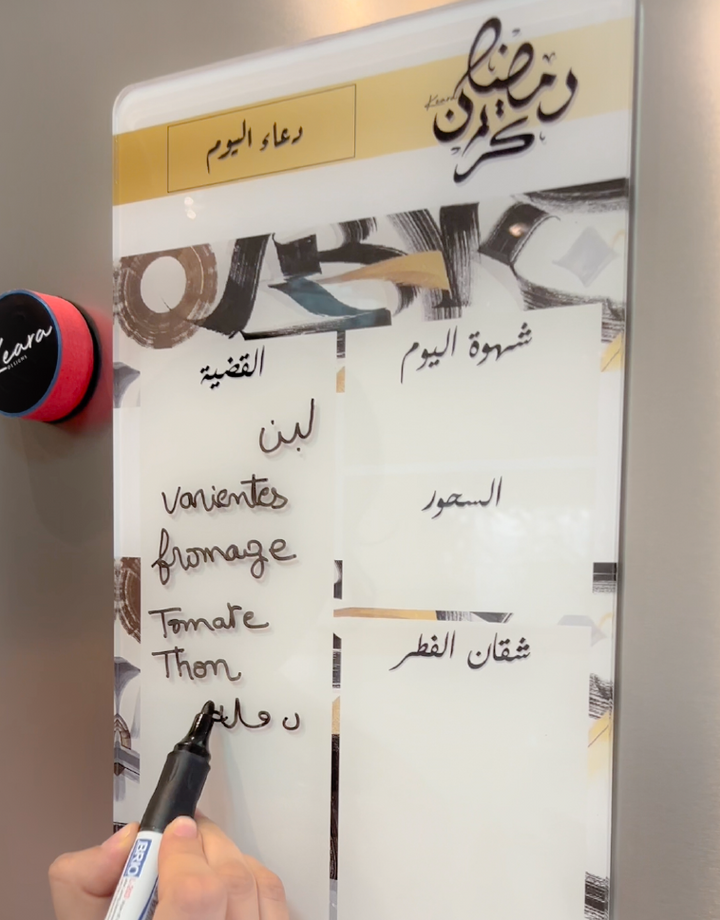 رمضان كريم
Keara
دعاء اليوم
شهوة اليوم
السحور
شقان الفطر
القضية
لبن
varientes
fromage
Tomate
Thon
Keara
DESIGNS
BRIO